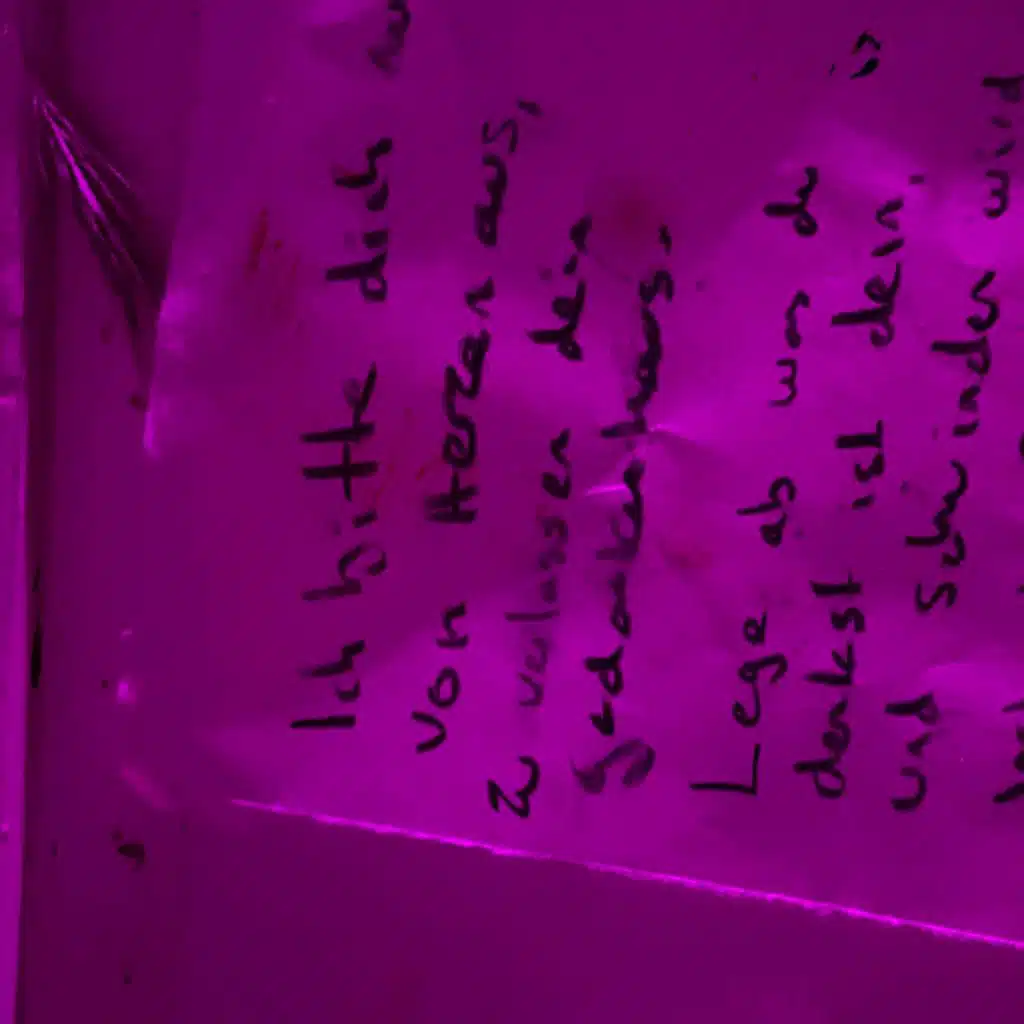 Ich bitte dich
von Herzen aus,
zu verlassen dein
gedankenhaus.
Lege ab was du
denkst ist dein,
und schwinden wird